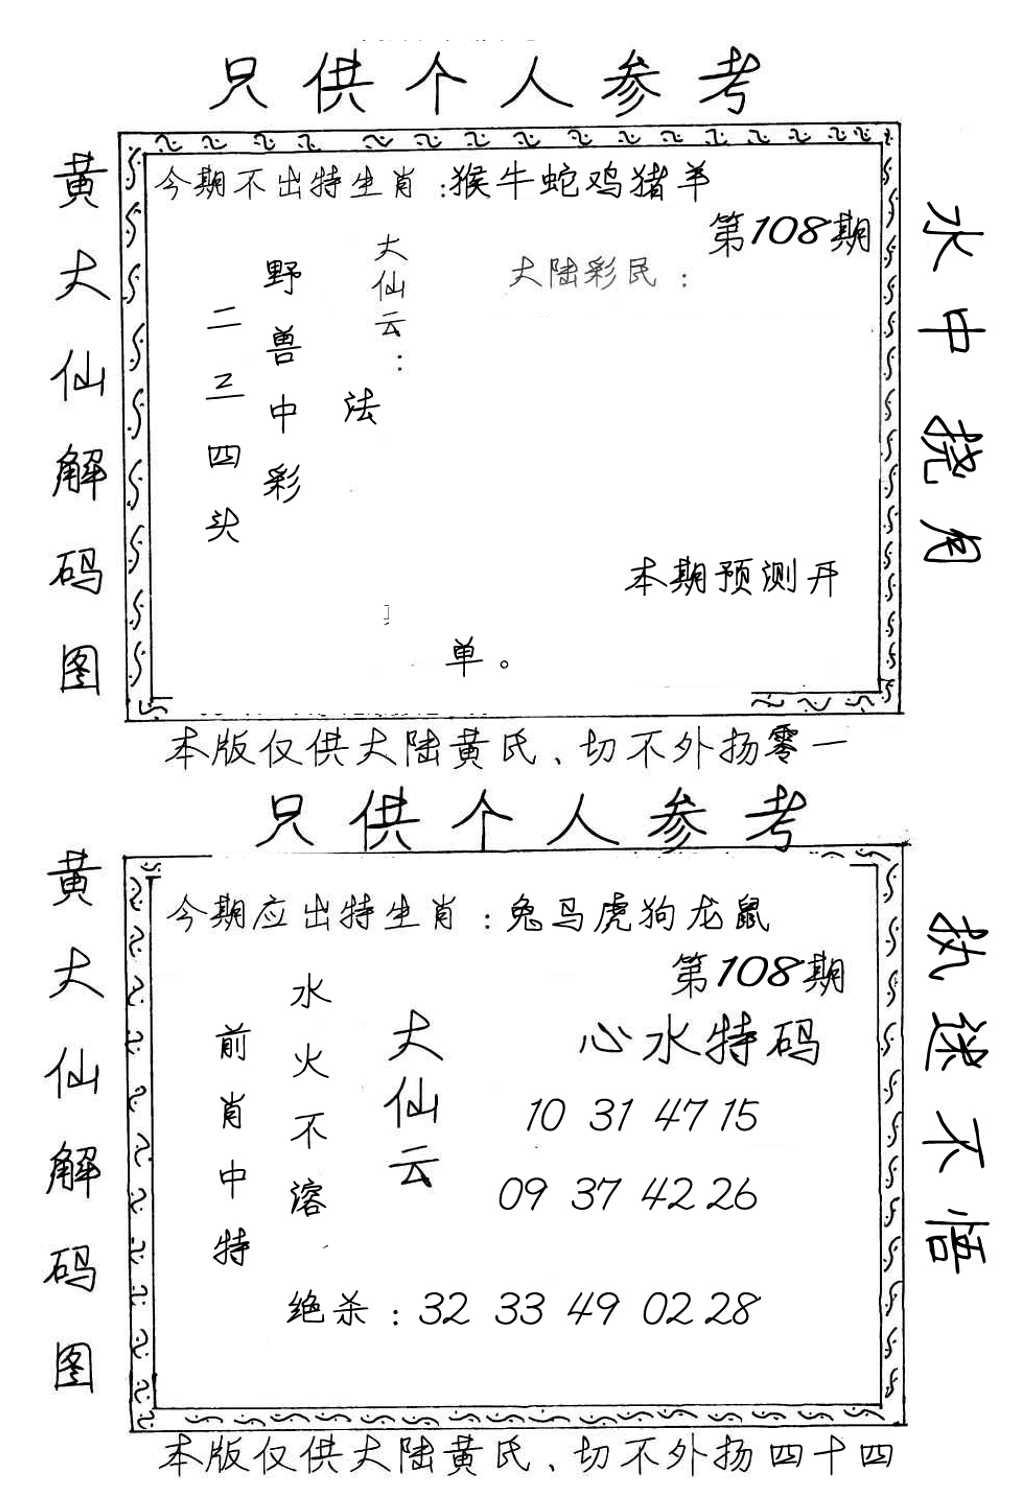 只供个人参考
黄大仙解码图
今期不出特生肖:猴牛蛇鸡猪羊
第108期
大陆彩民:
大仙云:
法
野兽中彩
二三四头
本期预测开
单。
水中捞月
本版仅供大陆黄氏、切不外扬零一
只供个人参考
黄大仙解码图
今期应出特生肖:兔马虎狗龙鼠
第108期
心水特码
大仙云
水火不溶
前肖中特
10 31 47 15
09 37 42 26
绝杀:32 33 49 02 28
执迷不悟
本版仅供大陆黄氏、切不外扬四十四